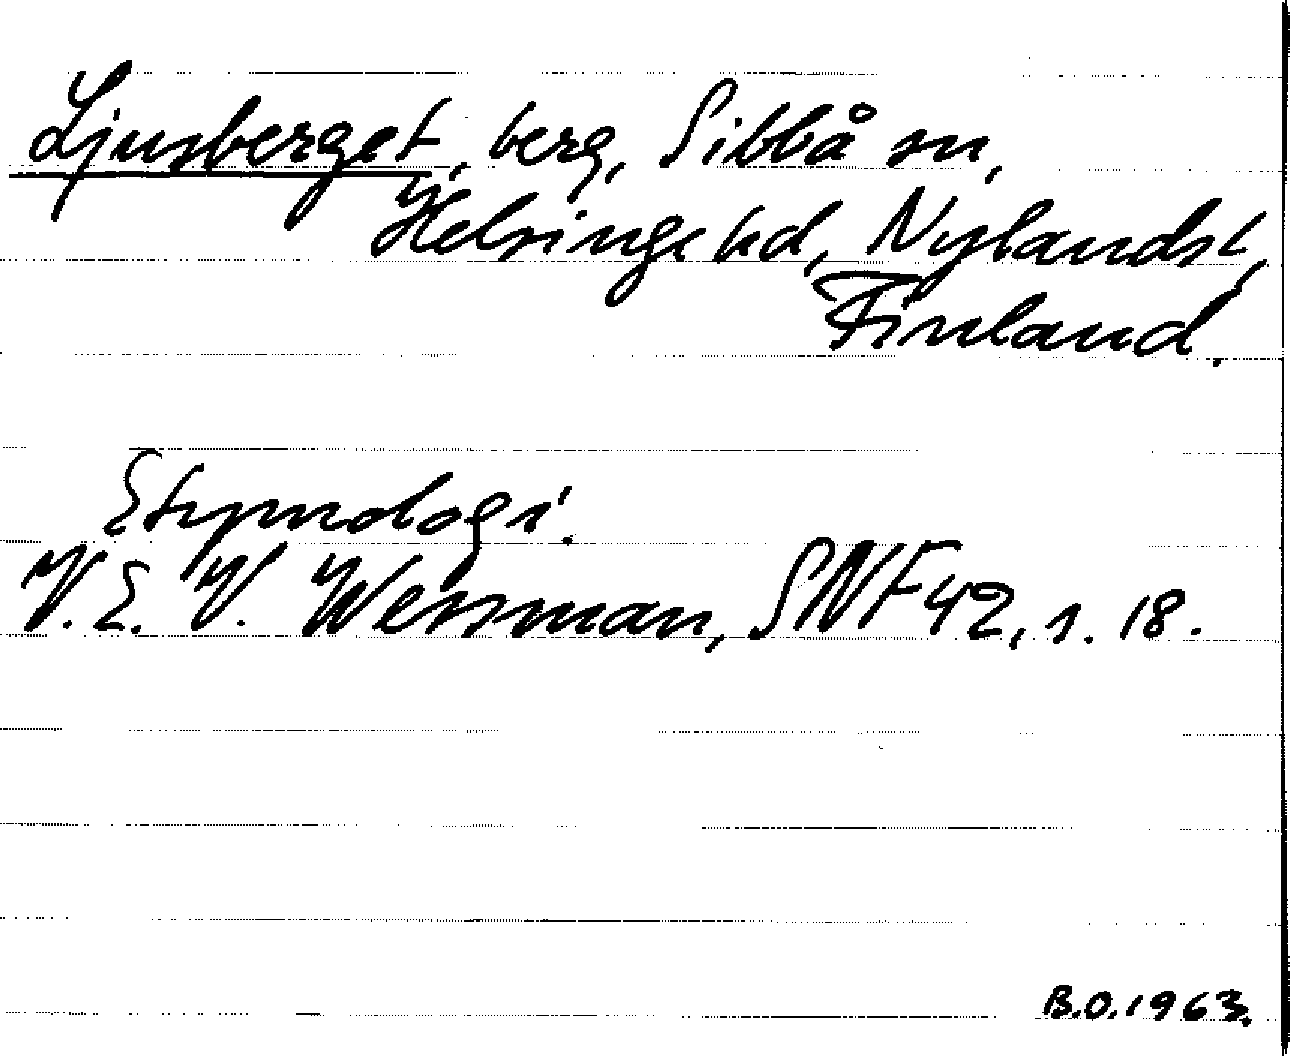 Ljusberget, berg, Sibbå sn,
Helsinge hd, Nylands l,
Finland.
Etymologi.
V. E. V. Wessman, SNF 42, s. 18.
B.O. 1963.